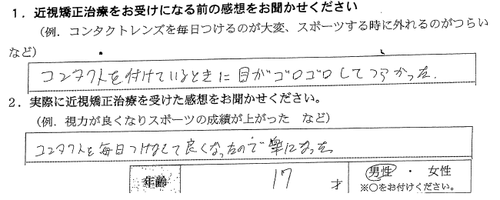 1. 近視矯正治療をお受けになる前の感想をお聞かせください
(例. コンタクトレンズを毎日つけるのが大変、スポーツする時に外れるのがつらい
など)
コンタクトを付けているときに目がゴロゴロしてつらかった.
2. 実際に近視矯正治療を受けた感想をお聞かせください。
(例. 視力が良くなりスポーツの成績が上がった など)
コンタクトを毎日つけなくて良くなったので楽になった
年齢 17 才 男性 ・ 女性
※○をお付けください。